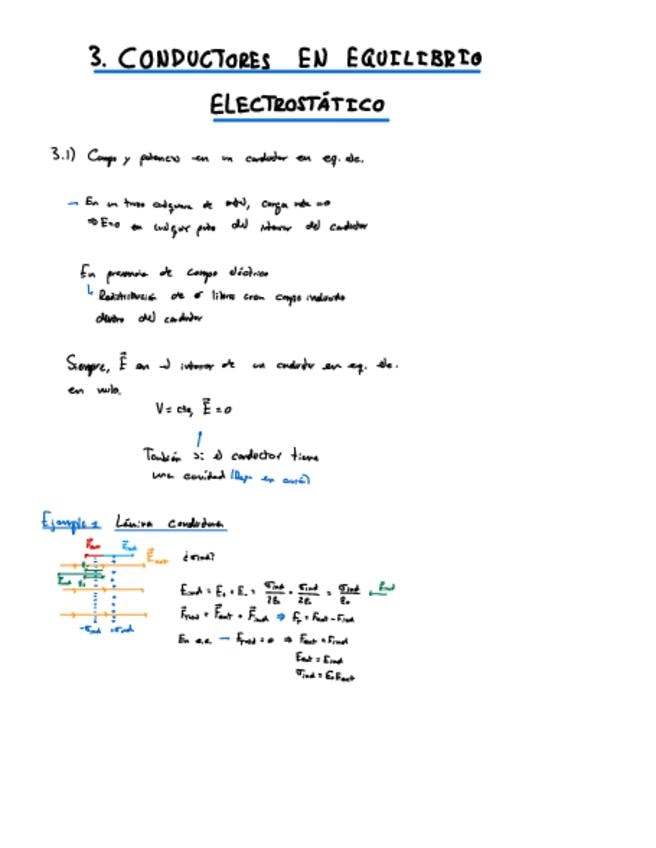 3. CONDUCTORES EN EQUILIBRIO
ELECTROSTÁTICO
3.1) Campo y potencial en un conductor en eq. ele.
→ En un trozo cualquiera de metal, carga neta = 0
⇒ E=0 en cualquier punto del interior del conductor
En presencia de campo eléctrico
↳ Redistribución de σ libre crean campo inducido
dentro del conductor
Siempre, E⃗ en el interior de un conductor en eq. ele.
es nulo.
V = cte, E⃗ = 0
También si el conductor tiene
una cavidad
Ejemplo: Lámina conductora
F⃗ext F⃗ind E⃗ext
¿σind?
E⃗ind
Eind = E+ + E- = σind/2ε0 + σind/2ε0 = σind/ε0
F⃗Total = F⃗ext + F⃗ind ⇒ FT = Fext - Find
-σind +σind
En e.e. → FTotal = 0 ⇒ Fext = Find
Eext = Eind
σind = ε0 Eext